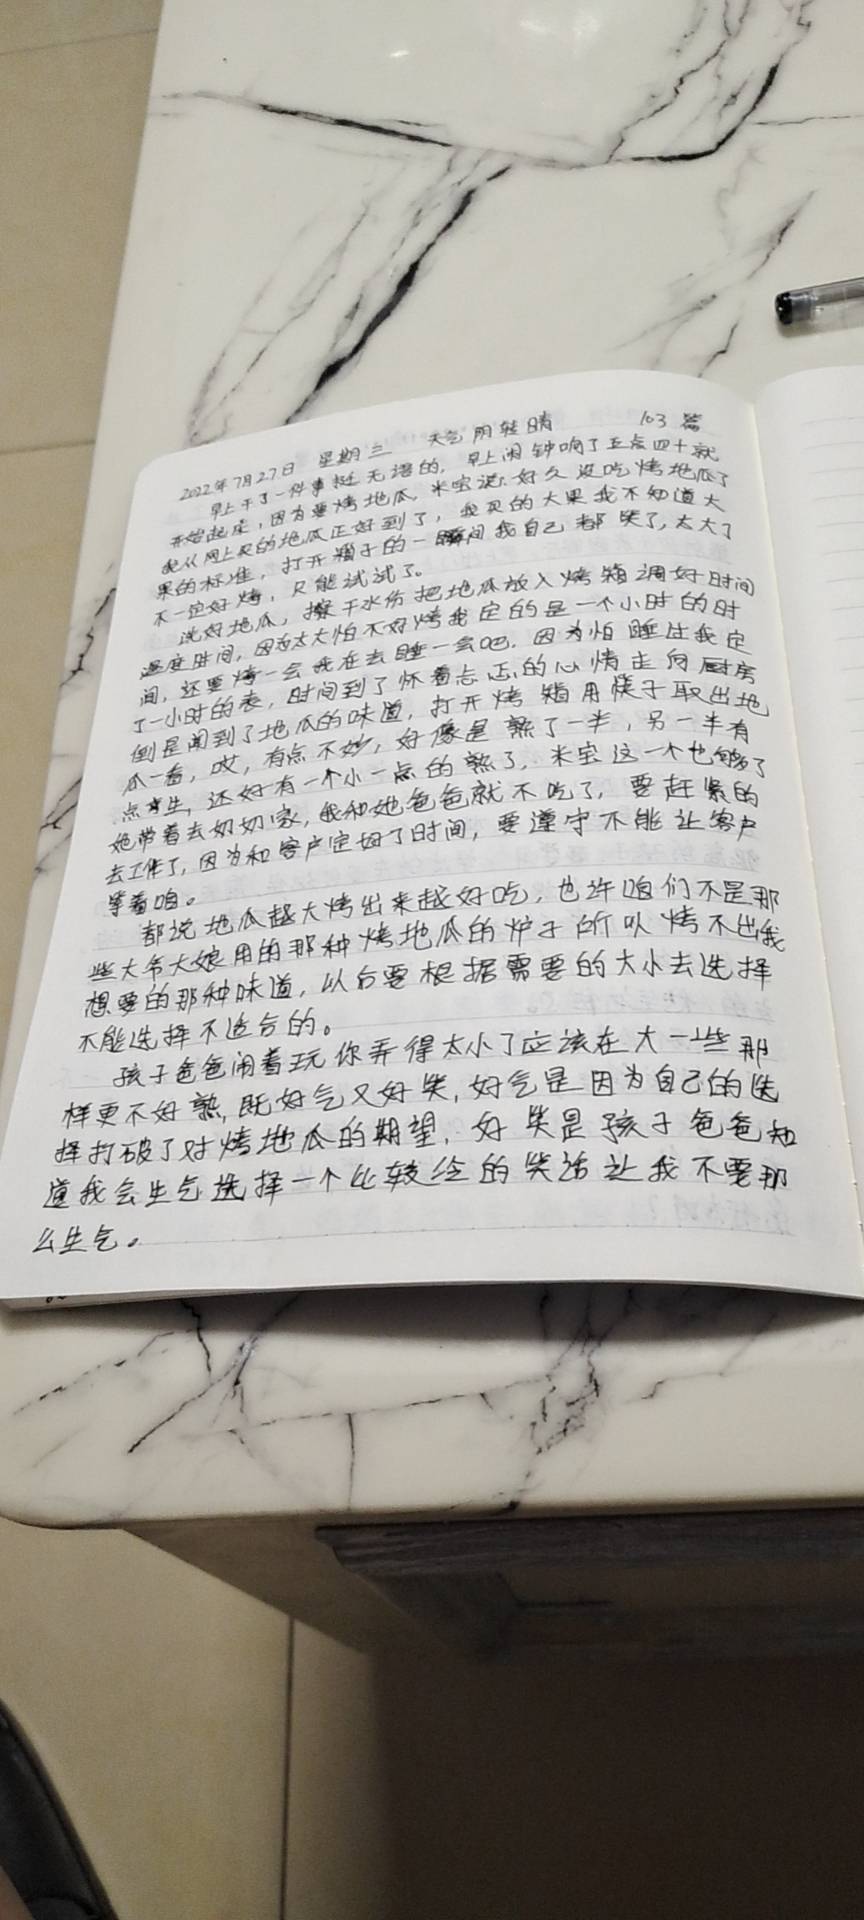 2022年7月27日 星期三 天气 阴转晴 103篇
早上干了一件事挺无语的,早上闹钟响了五点四十就
开始起床,因为要烤地瓜,米宝说:好久没吃烤地瓜了
我从网上买的地瓜正好到了,我买的大果我不知道大
果的标准,打开箱子的一瞬间我自己都笑了,太大了
不一定好烤,只能试试了。
洗好地瓜,擦干水份把地瓜放入烤箱调好时间
温度时间,因为太大怕不好烤我定的是一个小时的时
间,还要烤一会我在去睡一会吧,因为怕睡过我定
了一小时的表,时间到了怀着忐忑的心情走向厨房
倒是闻到了地瓜的味道,打开烤箱用筷子取出地
瓜一看,哎,有点不妙,好像是熟了一半,另一半有
点生,还好有一个小一点的熟了,米宝这一个也够了
她带着去奶奶家,我和她爸爸就不吃了,要赶紧的
去工作了,因为和客户定好了时间,要遵守不能让客户
等着咱。
都说地瓜越大烤出来越好吃,也许咱们不是那
些大爷大娘用的那种烤地瓜的炉子所以烤不出我
想要的那种味道,以后要根据需要的大小去选择
不能选择不适合的。
孩子爸爸闹着玩你弄得太小了应该在大一些那
样更不好熟,既好气又好笑,好气是因为自己的选
择打破了对烤地瓜的期望,好笑是孩子爸爸知
道我会生气选择一个比较冷的笑话让我不要那
么生气。